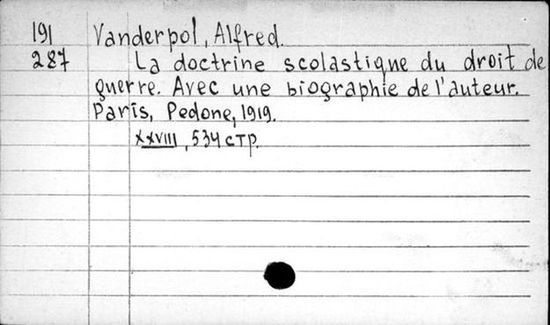 191 Vanderpol, Alfred.
287 La doctrine scolastique du droit de
guerre. Avec une biographie de l'auteur.
Paris, Pedone, 1919.
XXVIII, 534 стр.